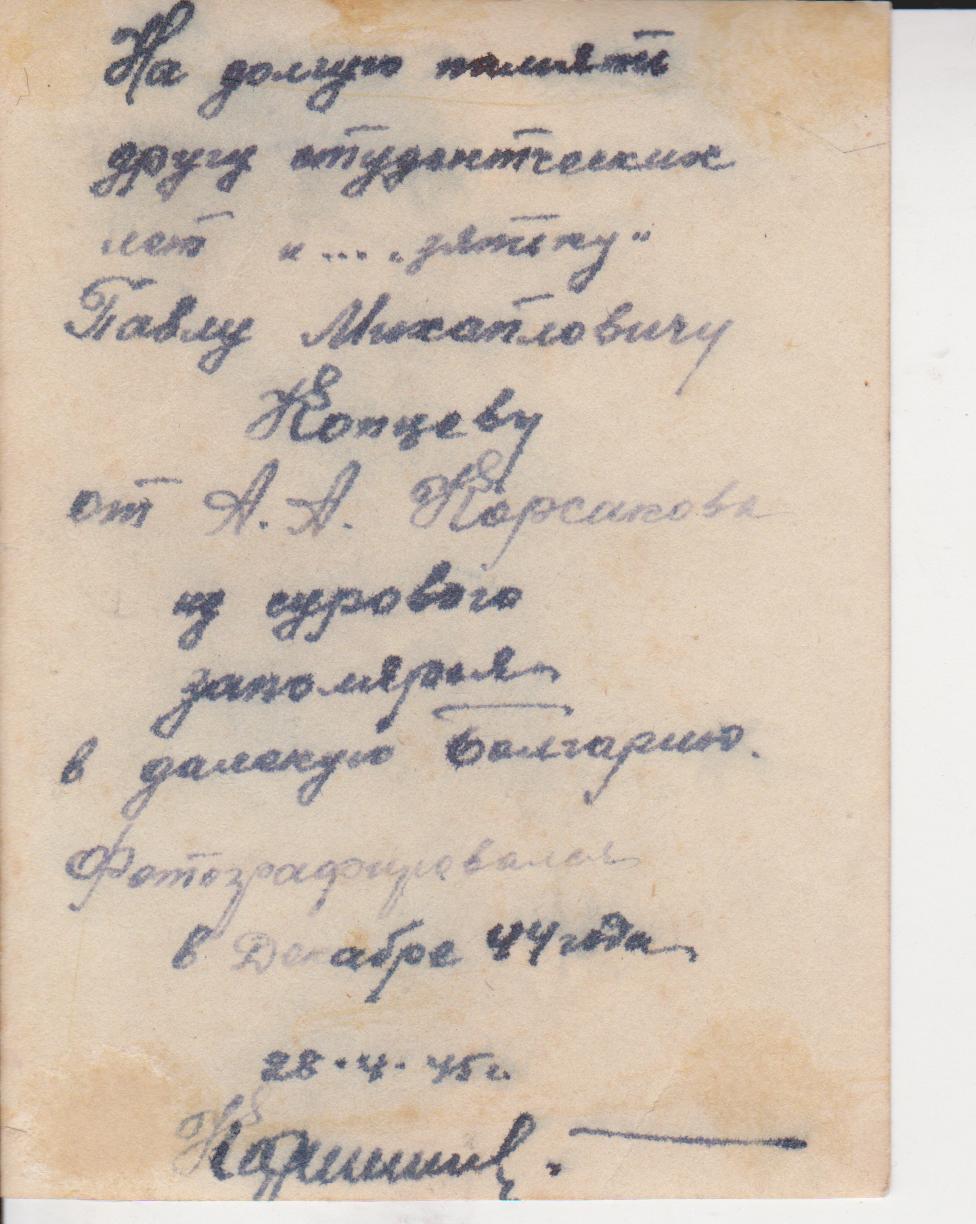 На долгую память
другу студенческих
лет и ... „зятьку"
Павлу Михайловичу
Копцеву
от А. А. Корсакова
из сурового
заполярья
в далекую Болгарию.
Фотографировался
в Декабре 44 года
28.4.45 г.